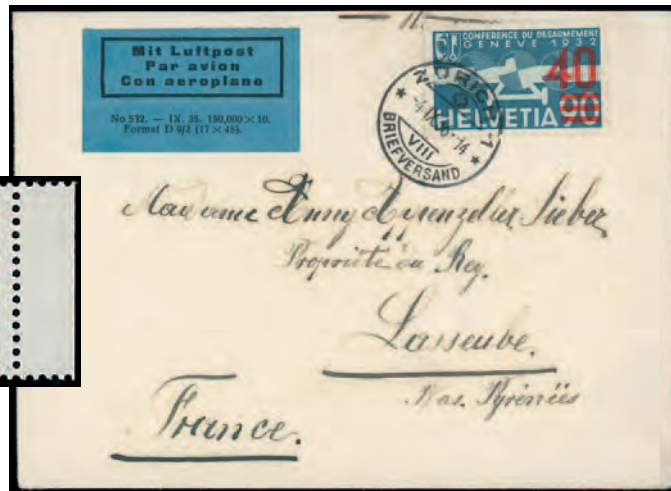 Mit Luftpost
Par avion
Con aeroplano
No 532. — IX. 35. 150,000 × 10.
Format D 9/2 (17 × 48).
CONFERENCE DU DESARMEMENT
GENEVE 1932
40
HELVETIA 90
ZÜRICH 1
VIII
BRIEFVERSAND
Madame Anny
Propriété du Rey.
Lasseube.
Bas. Pyrénées
France.